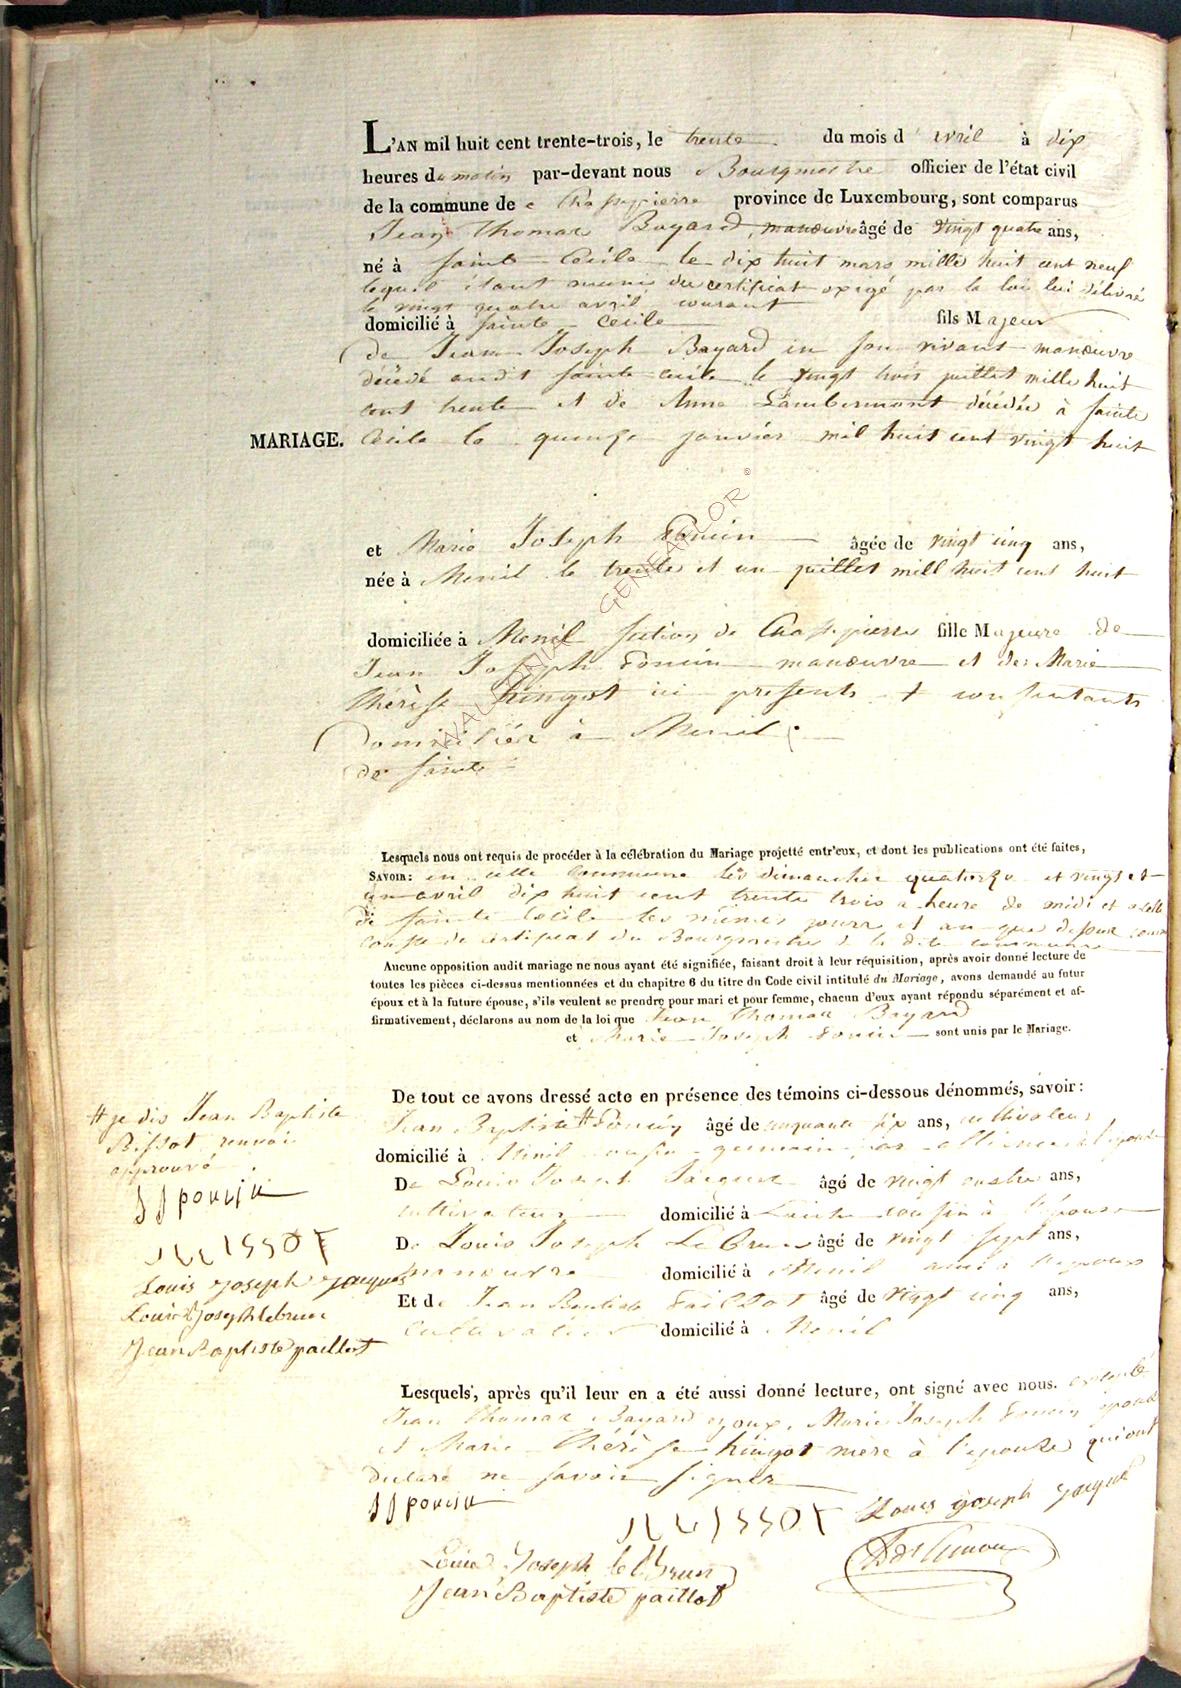 L'AN mil huit cent trente-trois, le trente du mois d'avril à dix
heures du matin par-devant nous Bourgmestre officier de l'état civil
de la commune de Chassepierre province de Luxembourg, sont comparus
Jean Thomas Bayard, manœuvre âgé de vingt quatre ans,
né à Sainte Cécile le dix huit mars mille huit cent neuf
lequel étant munis du certificat exigé par la loi lui délivré
le vingt quatre avril courant
domicilié à Sainte Cecile fils Majeur
de Jean Joseph Bayard en son vivant manœuvre
décédé audit Sainte Cecile le vingt trois juillet mille huit
cent trente et de Anne Lambermont décédée à Sainte
MARIAGE. Cecile le quinze janvier mil huit cent vingt huit
et Marie Joseph Poncin âgée de vingt cinq ans,
née à Menil le trente et un juillet mill huit cent huit
domiciliée à Menil section de Chassepierre fille Majeure de
Jean Joseph Poncin manœuvre et de Marie
Thérèse hingot ici presents et consentants
domiciliés à Menil
de Sainte
WALLONIA GENEAFLOR ©
Lesquels nous ont requis de procéder à la célébration du Mariage projetté entr'eux, et dont les publications ont été faites,
SAVOIR: en cette commune les dimanches quatorze et vingt et
un avril dix huit cent trente trois a heure de midi et a celle
de Sainte Cecile les mêmes jours et an que dessus
certificat du Bourgmestre de la dite commune
Aucune opposition audit mariage ne nous ayant été signifiée, faisant droit à leur réquisition, après avoir donné lecture de
toutes les pièces ci-dessus mentionnées et du chapitre 6 du titre du Code civil intitulé du Mariage, avons demandé au futur
époux et à la future épouse, s'ils veulent se prendre pour mari et pour femme, chacun d'eux ayant répondu séparément et af-
firmativement, déclarons au nom de la loi que Jean Thomas Bayard
et Marie Joseph Poncin sont unis par le Mariage.
De tout ce avons dressé acte en présence des témoins ci-dessous dénommés, savoir:
Jean Baptiste # Poncin âgé de cinquante six ans, cultivateur
domicilié à Menil cousin germain par
De Louis Joseph Jacques âgé de vingt quatre ans,
cultivateur domicilié à cousin à l'épouse
De Louis Joseph Le Brun âgé de vingt sept ans,
manœuvre domicilié à Menil ami à l'époux
Et de Jean Baptiste Paillot âgé de vingt cinq ans,
cultivateur domicilié à Menil
# je dis Jean Baptiste
Bissot renvoi
approuvé
JJ poncin
Louis Joseph Jacques
Louis Joseph lebrun
Jean Baptiste paillot
Lesquels, après qu'il leur en a été aussi donné lecture, ont signé avec nous. excepté
Jean Thomas Bayard epoux, Marie Joseph Poncin épouse
et Marie Thérèse hingot mère à l'epouse qui ont
declaré ne savoir signer
JJ poncin
Louis Joseph Jacques
Louis Joseph le Brun
Jean Baptiste paillot